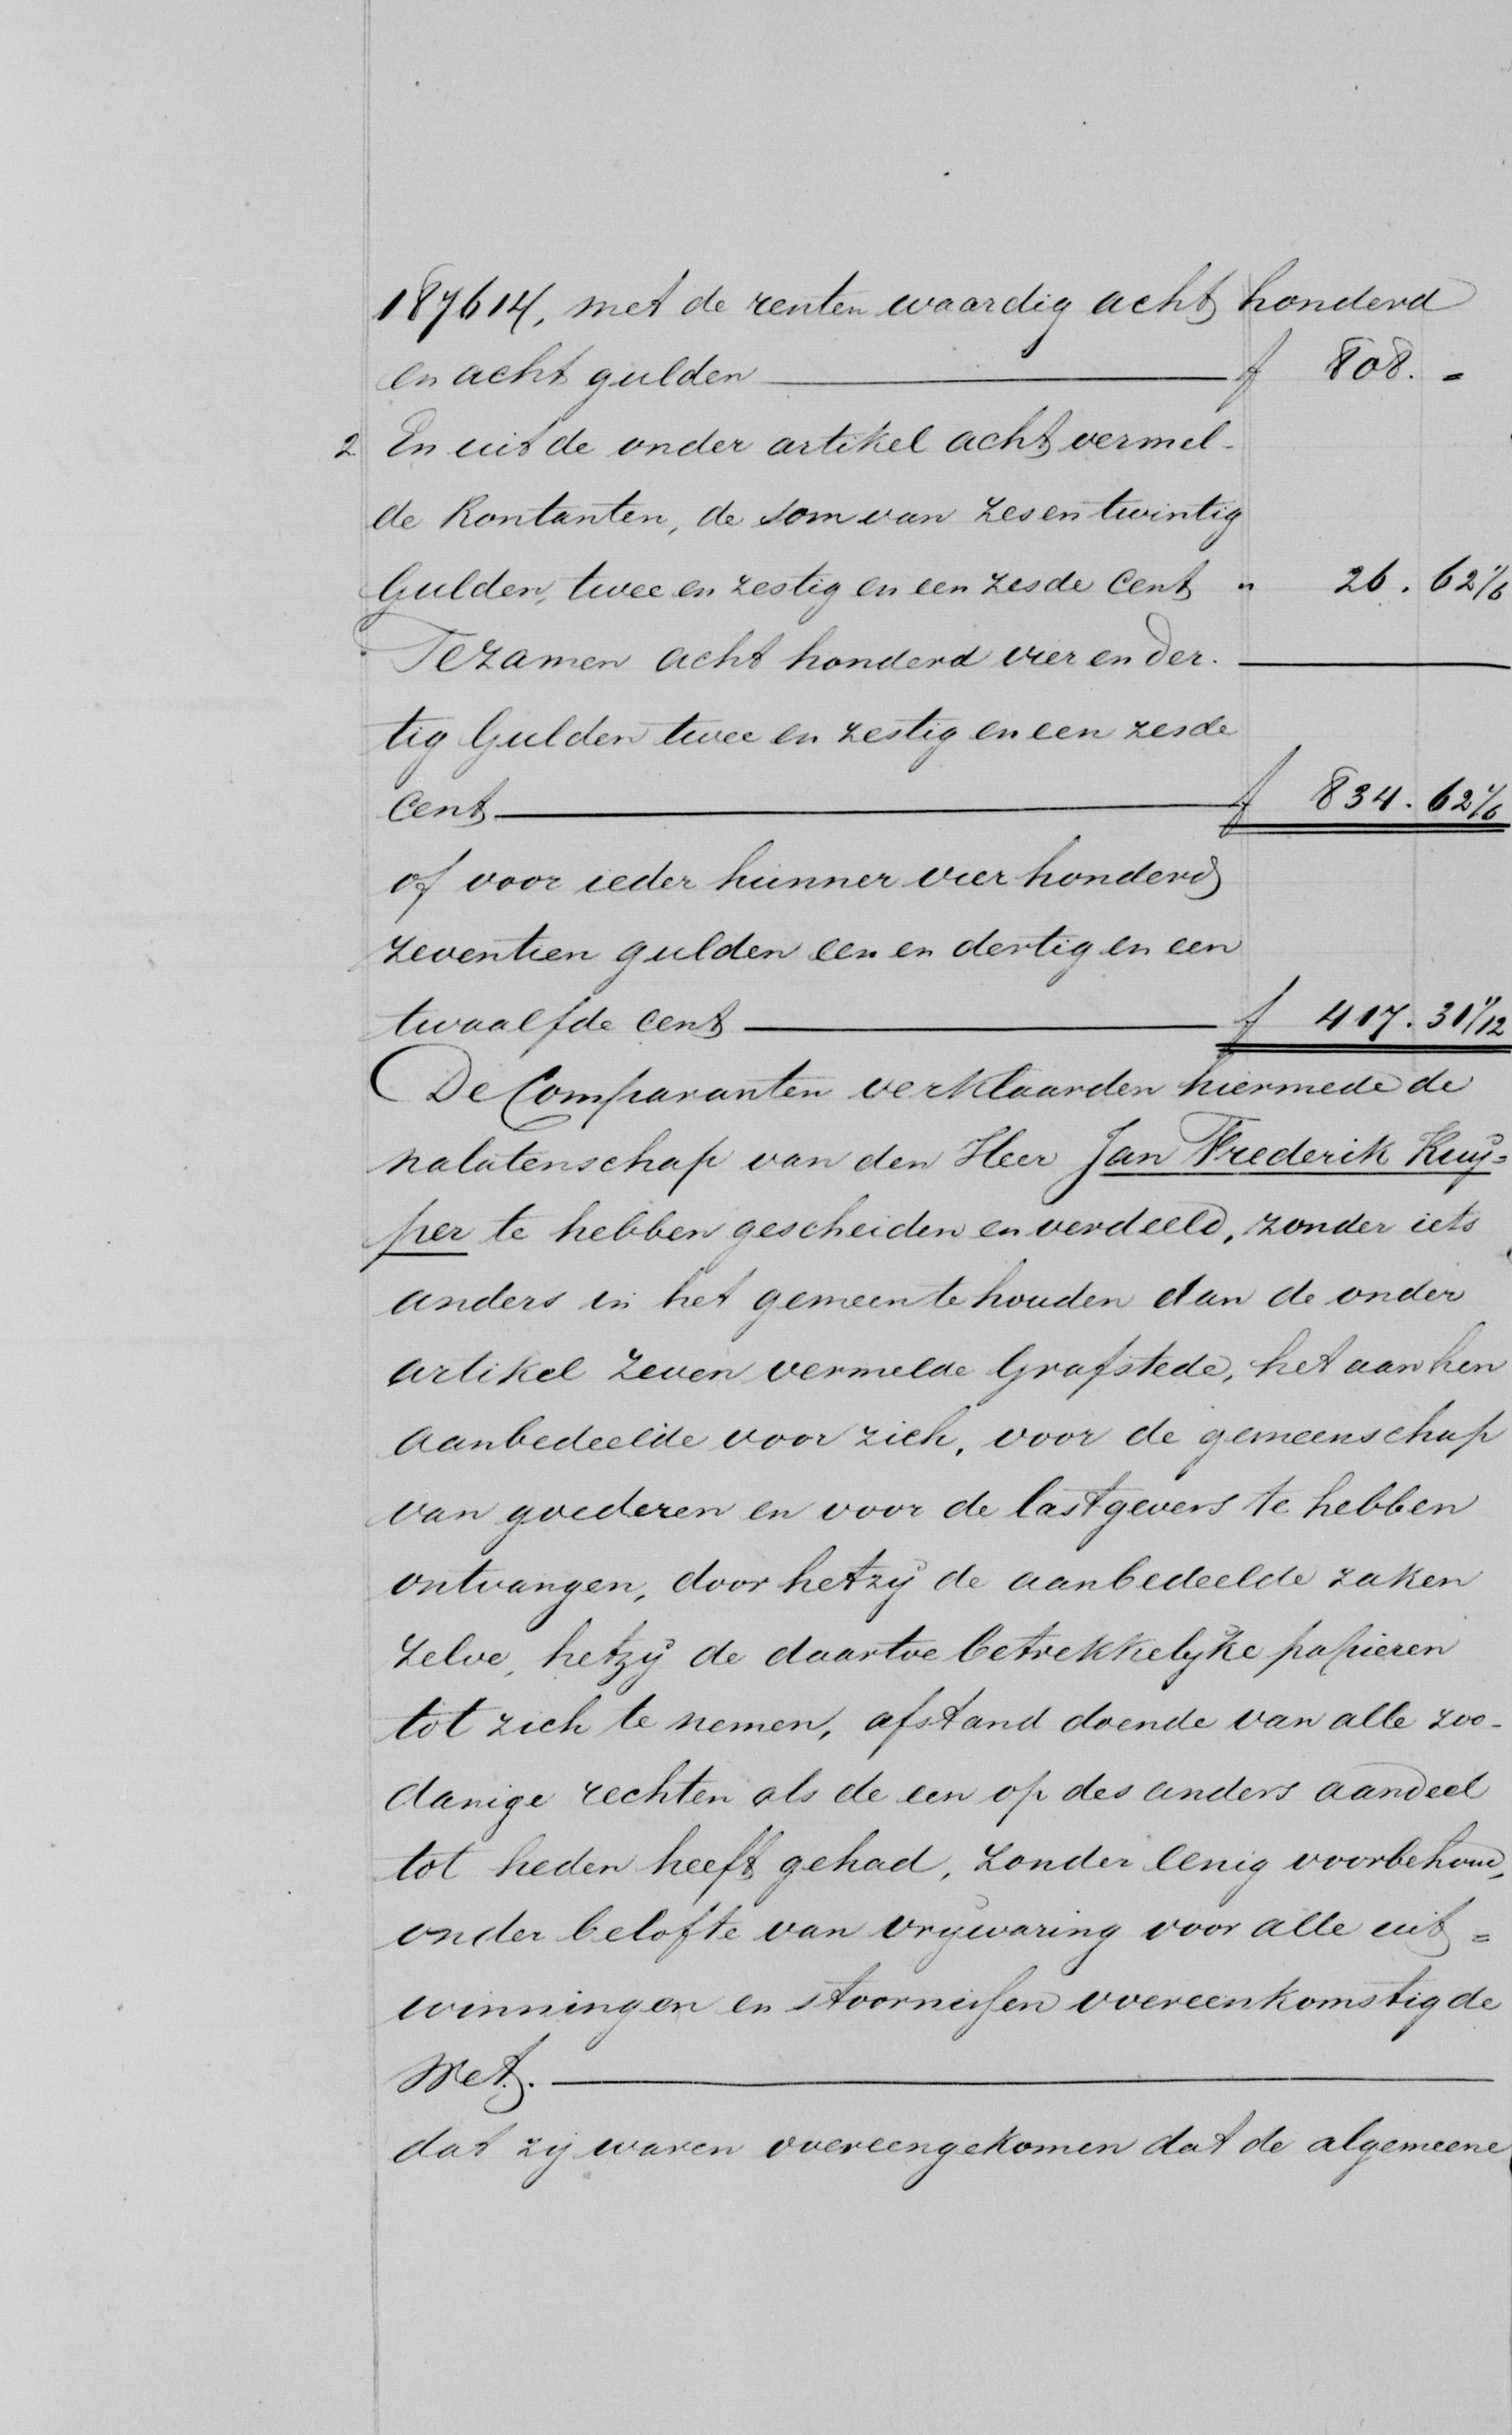 187614, met de renten waardig acht honderd
en acht gulden f 808.-
2 En uit de onder artikel acht vermel-
de kontanten, de som van zesentwintig
Gulden, twee en zestig en een zesde Cent " 26.62 1/6
Tezamen acht honderd vier en der-
tig Gulden twee en zestig en een zesde
Cent f 834.62 1/6
of voor ieder hunner vier honderd
zeventien gulden een en dertig en een
twaalfde cent f 417.31 1/12
De Comparanten verklaarden hiermede de
nalatenschap van den Heer Jan Frederik Kuij=
per te hebben gescheiden en verdeeld, zonder iets
anders in het gemeen te houden dan de onder
artikel zeven vermelde Grafstede, het aan hen
aanbedeelde voor zich, voor de gemeenschap
van goederen en voor de lastgevers te hebben
ontvangen, door hetzij de aanbedeelde zaken
zelve, hetzij de daartoe betrekkelijke papieren
tot zich te nemen, afstand doende van alle zoo-
danige rechten als de een op des anders aandeel
tot heden heeft gehad, zonder eenig voorbehoud,
onder belofte van vrijwaring voor alle uit=
winningen en stoornissen overeenkomstig de
Wet.
dat zij waren overeengekomen dat de algemeene